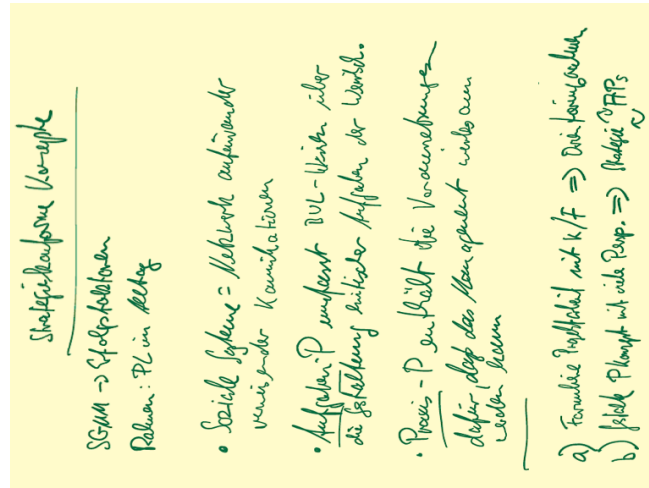 Strategiekonforme Konzepte
SGMM → Erfolgsfaktoren
Rahmen: PL im Alltag
• Soziale Systeme = Netzwerk aufeinander
verweisender Kommunikationen
• Aufgaben-P umfasst BWL-Wissen über
die Gestaltung kritischer Aufgaben der Wertsch.
• Praxis-P enthält die Vorkehrungen
dafür, dass das Management wirksam
werden kann
a) Formuliere mit K/F ⇒
b) P Konzept mit viele Persp. ⇒ Strategie